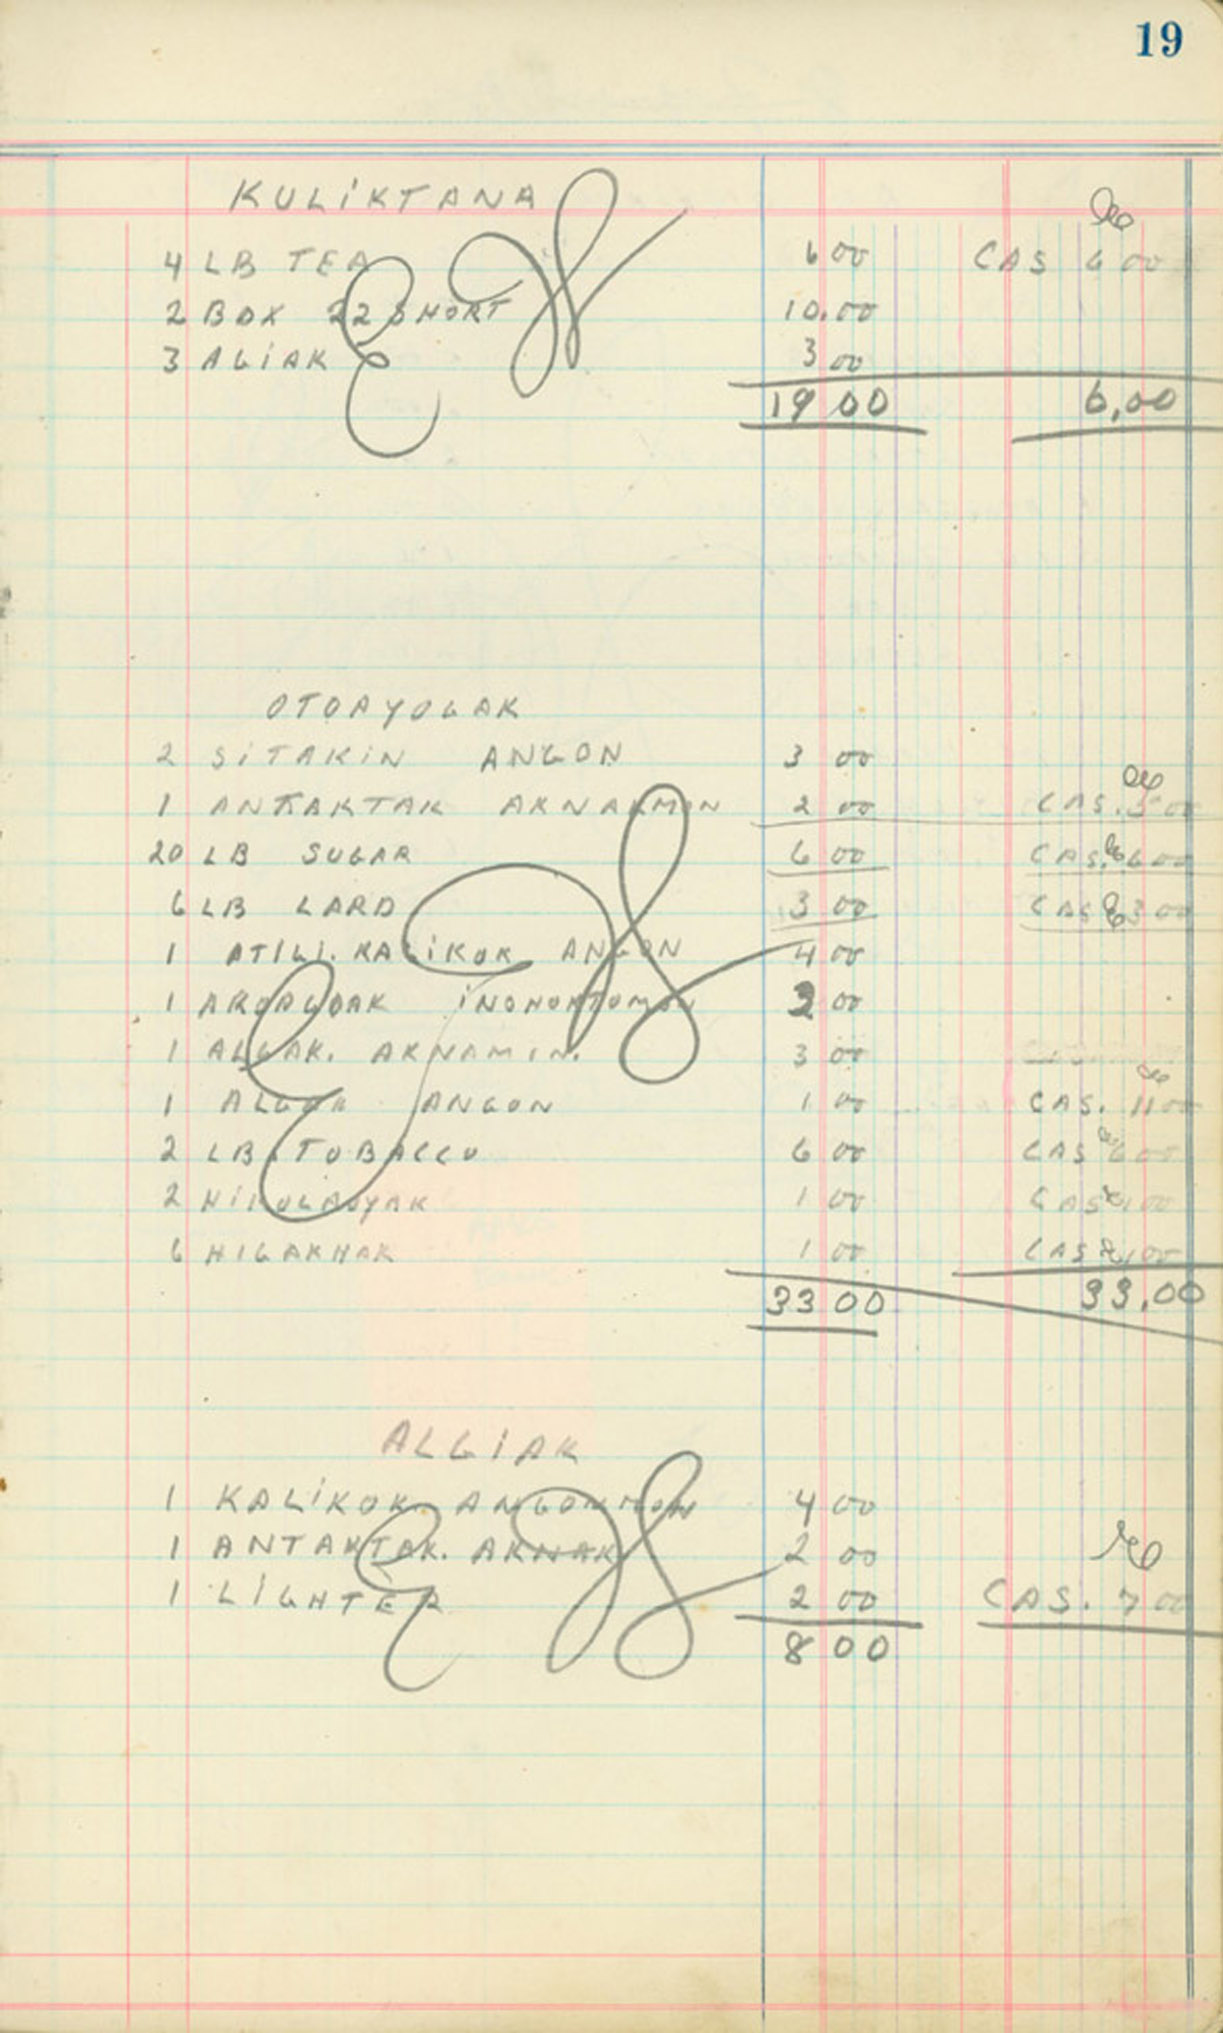 19
KULIKTANA
4 LB TEA 6 00 CAS 6 00
2 BOX 22 SHORT 10.00
3 ALIAK 3 00
19 00 6,00
OTOAYOGAK
2 SITAKIN ANGON 3 00
1 ANTAKTAK AKNAKMIN 2 00 CAS. 5 00
20 LB SUGAR 6 00 CAS. 6 00
6 LB LARD 3 00 CAS 3 00
1 ATILI. KALIKOK ANGON 4 00
1 INONOKTOMON 3 00
1 ALGAK. AKNAMIN. 3 00
1 ALGAK ANGON 1 00 CAS. 11 00
2 LB TOBACCO 6 00 CAS 6 00
2 1 00 CAS 1 00
6 HIGAKHAK 1 00 CAS 1,00
33 00 33,00
ALGIAK
1 KALIKOK ANGONMON 4 00
1 ANTAKTAK. AKNAK 2 00
1 LIGHTER 2 00 CAS. 7 00
8 00